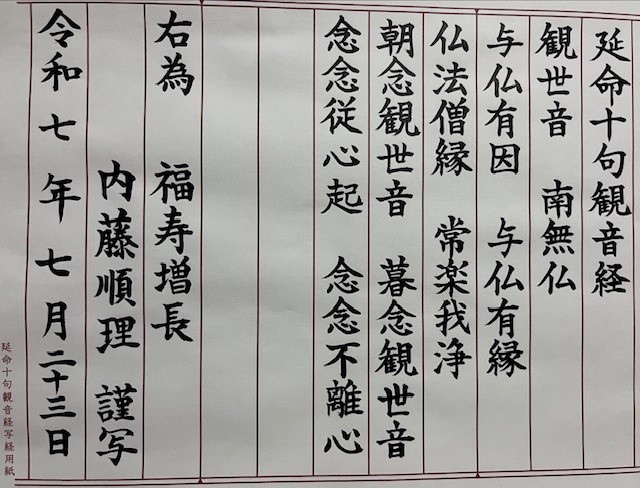 延命十句観音経
観世音　南無仏
与仏有因　与仏有縁
仏法僧縁　常楽我浄
朝念観世音　暮念観世音
念念従心起　念念不離心
右為　福寿増長
内藤順理　謹写
令和七年七月二十三日
延命十句観音経写経用紙